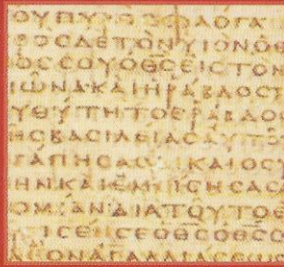 ΟΥΠΥΡΟϹΦΛΟΓΑ
ΡΟϹΔΕΤΟΝΥΙΟΝΟΘ
ΟϹϹΟΥΟΘϹΕΙϹΤΟΝ
ΙΩΝΑΚΑΙΗΡΑΒΔΟϹΤ
ΥΘΥΤΗΤΟϹΡΑΒΔΟϹ
ΗϹΒΑϹΙΛΕΙΑϹΑΥΤΟ
ΓΑΠΗϹΑϹΔΙΚΑΙΟϹΥ
ΗΝΚΑΙΕΜΙϹΗϹΑϹ
ΟΜΙΑΝΔΙΑΤΟΥΤΟΕ
ΙϹΕΝϹΕΟΘϹΟΘϹϹΟ
ΛΕΟΝΑΓΑΛΛΙΑϹΕΩϹ